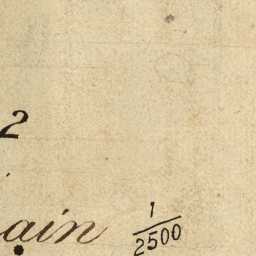 2
ain 1/2500